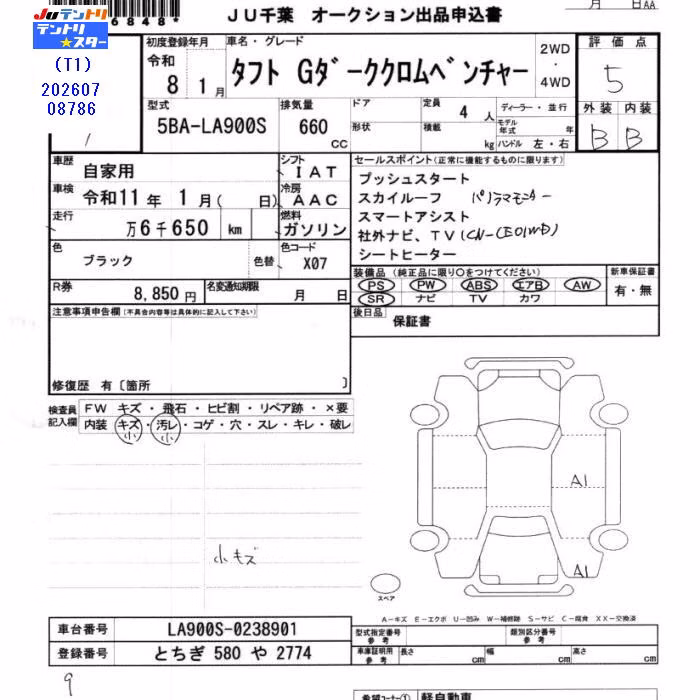 6848*
JU千葉 オークション出品申込書
月 日AA
JUテントリ
テントリ★スター
(T1)
202607
08786
初度登録年月
令和
8 1月
車名・グレード
タフト Gダーククロムベンチャー
2WD
・
4WD
評価点
5
型式
5BA-LA900S
排気量
660
CC
ドア
形状
定員 4 人
積載 kg
ディーラー・並行
モデル年式 年
ハンドル 左・右
外装 内装
B B
車歴
自家用
シフト
IAT
セールスポイント(正常に機能するものに限ります)
車検
令和11年 1月( 日)
冷房
AAC
プッシュスタート
スカイルーフ パノラマモニター
走行
万6千650 km
燃料
ガソリン
スマートアシスト
社外ナビ、TV(CN-CE01WD)
シートヒーター
色
ブラック
色替
色コード
X07
装備品 (純正品に限り○をつけてください)
PS PW ABS エアB AW
SR ナビ TV カワ
新車保証書
有・無
R券
8,850円
名変通知期限
月 日
後日品
保証書
注意事項申告欄(不具合内容等は具体的に記入して下さい)
修復歴 有〔箇所 〕
検査員記入欄
FW キズ・飛石・ヒビ割・リペア跡・×要
内装 キズ・汚レ・コゲ・穴・スレ・キレ・破レ
小 小
小キズ
A1
A1
スペア
A-キズ E-エクボ U-凹み W-補修跡 S-サビ C-腐食 XX-交換済
車台番号
LA900S-0238901
登録番号
とちぎ 580 や 2774
型式指定番号
参考
類別区分番号
参考
車庫証明用
参考
長さ cm 幅 cm 高さ cm
9
希望コーナー① 軽自動車